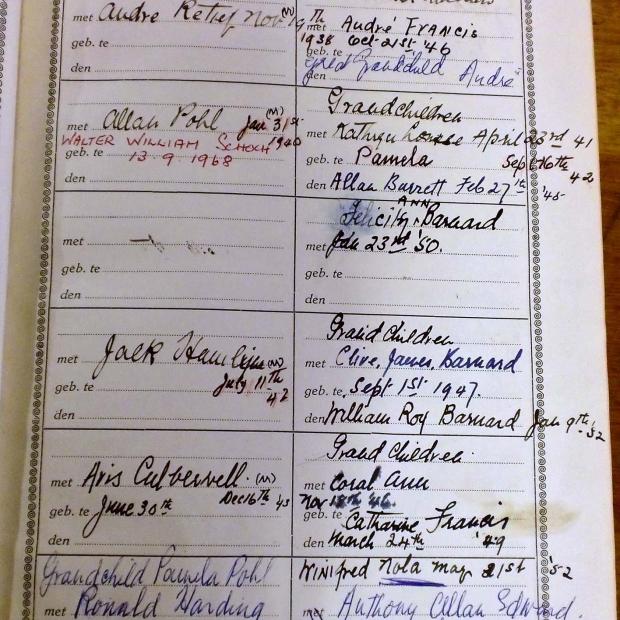 met André Retief Nov (M) 19th
1938
geb. te
den
met André Francis
geb. te Oct 21st '46
den Grandchild André
met Allan Pohl (M) Jan 31st
1940
WALTER WILLIAM SCHOCH
geb. te
13 9 1968
den
Grandchildren
met Kathryn April 23rd 41
geb. te Pamela Sep 16th
42
den Allan Barrett Feb 27th
'45
met
geb. te
den
ANN
Felicity Barnard
met Jan 23rd '50.
geb. te
den
met Jack (M)
geb. te July 11th
42
den
Grandchildren
met Clive, James, Barnard
geb. te Sept 1st 1947.
den William Roy Barnard Jan 9th '52
met Aris Culverwell. (M)
geb. te June 30th Dec 16th 43
den
Grandchildren.
met Coral Ann
Nov 18th 46.
geb. te Catharine Francis
den March 24th '49
Grandchild Pamela Pohl
met Ronald Harding
Winifred Nola May 21st '52
met Anthony Allan Edward.